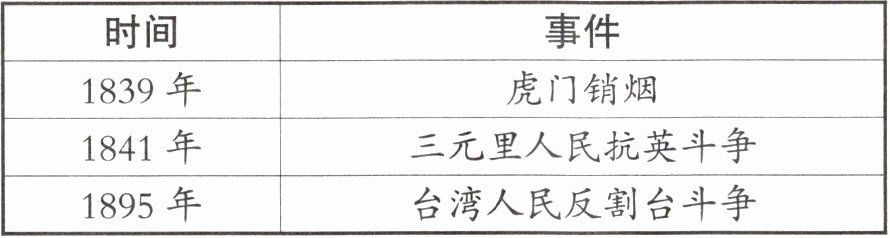 时间 事件
1839 年 虎门销烟
1841 年 三元里人民抗英斗争
1895 年 台湾人民反割台斗争